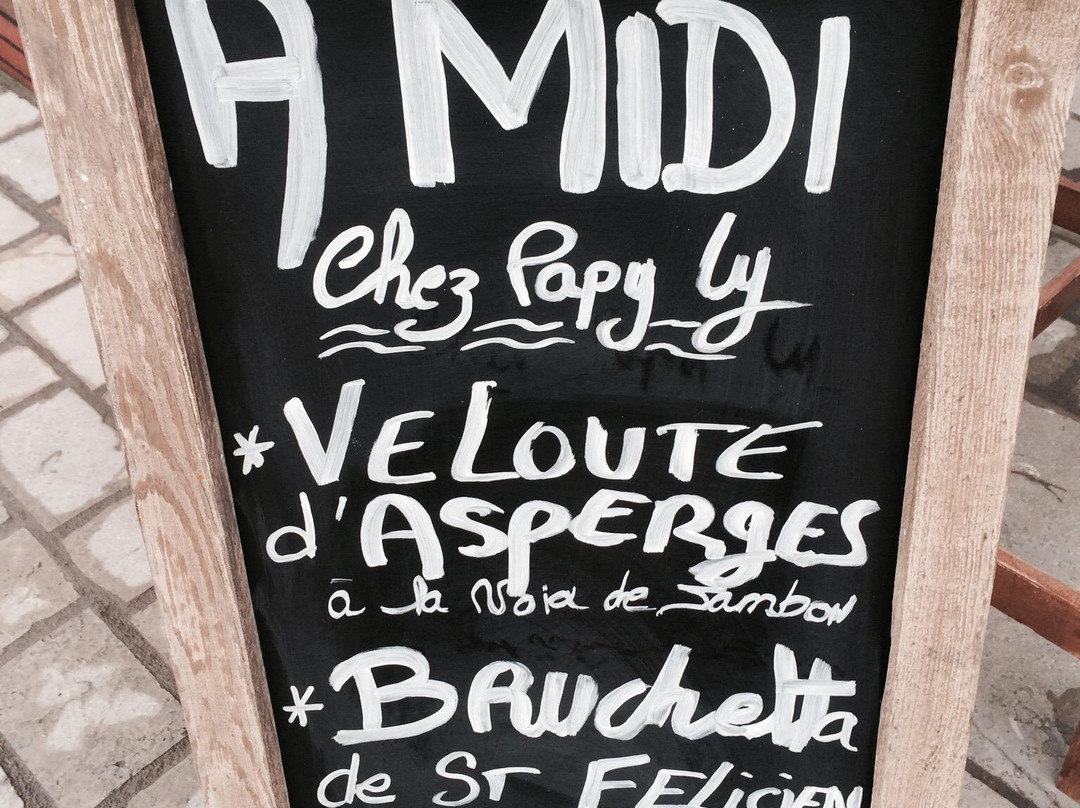 A MIDI
Chez Papy Ly
* VELOUTE
d'ASPERGES
à la Noix de Jambon
* BRUchetta
de ST FELiciEN